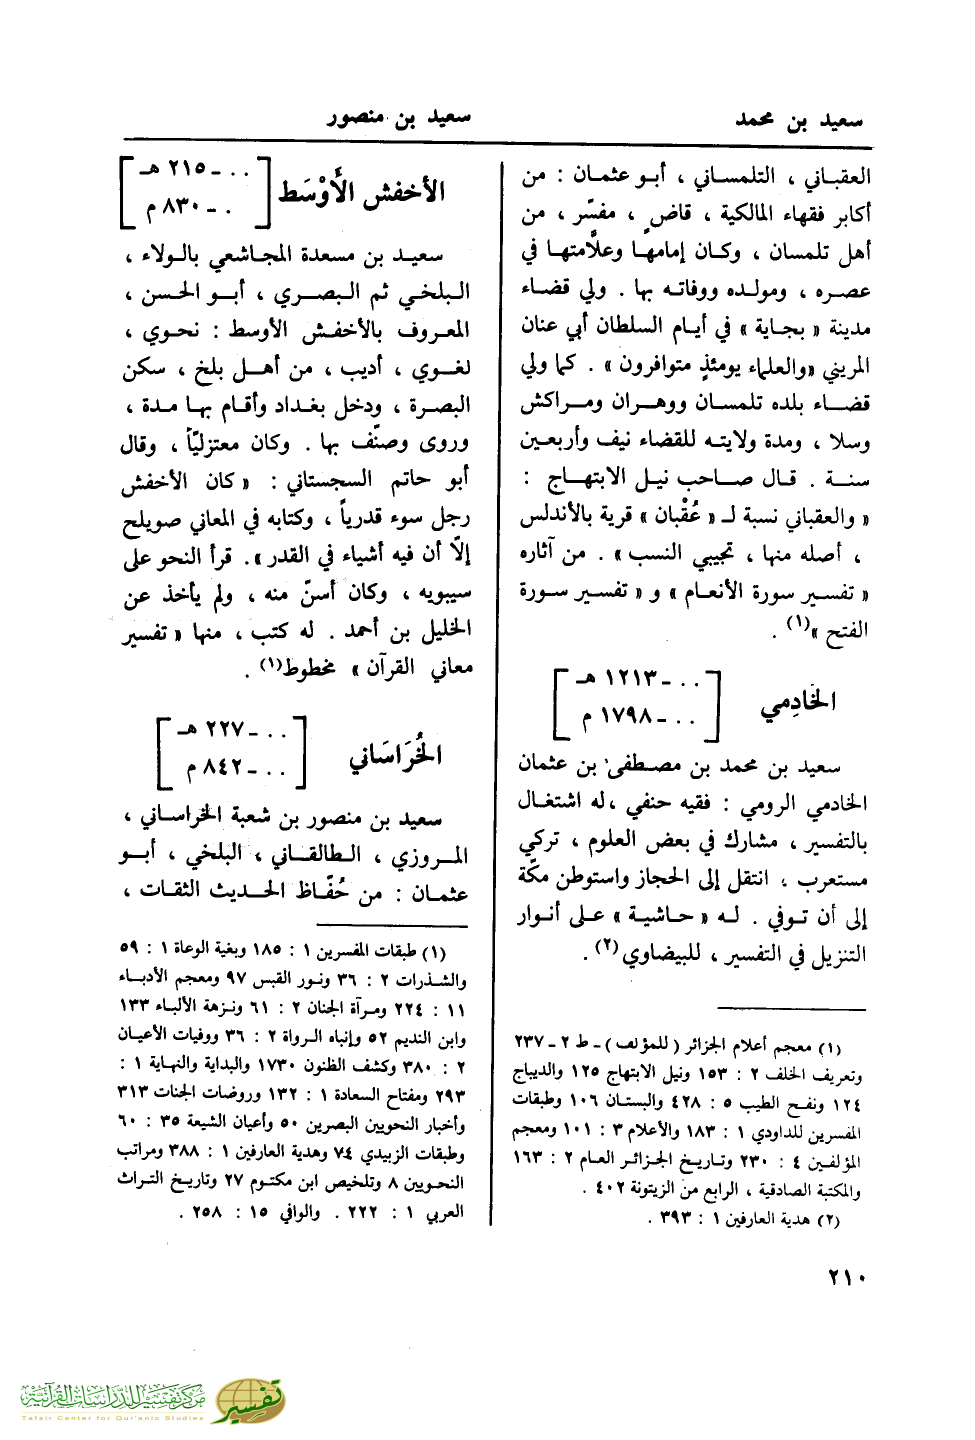 سعيد بن محمد
سعيد بن منصور
العقباني ، التلمساني ، أبو عثمان : من
أكابر فقهاء المالكية ، قاضٍ ، مفسّر ، من
أهل تلمسان ، وكان إمامها وعلّامتها في
عصره ، ومولده ووفاته بها . ولي قضاء
مدينة « بجاية » في أيام السلطان أبي عنان
المريني «والعلماء يومئذٍ متوافرون » . كما ولي
قضاء بلده تلمسان ووهران ومراكش
وسلا ، ومدة ولايته للقضاء نيف وأربعين
سنة . قال صاحب نيل الابتهاج :
« والعقباني نسبة لـ « عُقْبان » قرية بالأندلس
، أصله منها ، تجيبي النسب » . من آثاره
« تفسير سورة الأنعام » و « تفسير سورة
الفتح »(١) .
الخَادِمي
[ . . ـ ١٢١٣ هـ
. . ـ ١٧٩٨ م ]
سعيد بن محمد بن مصطفى بن عثمان
الخادمي الرومي : فقيه حنفي ،له اشتغال
بالتفسير ، مشارك في بعض العلوم ، تركي
مستعرب ، انتقل إلى الحجاز واستوطن مكّة
إلى أن توفي . له « حاشية » على أنوار
التنزيل في التفسير ، للبيضاوي (٢) .
(١) معجم أعلام الجزائر ( للمؤلف ) ـ ط ٢ ـ ٢٣٧
وتعريف الخلف ٢ : ١٥٣ ونيل الابتهاج ١٢٥ والديباج
١٢٤ ونفح الطيب ٥ : ٤٢٨ والبستان ١٠٦ وطبقات
المفسرين للداودي ١ : ١٨٣ والأعلام ٣ : ١٠١ ومعجم
المؤلفين ٤ : ٢٣٠ وتاريخ الجزائر العام ٢ : ١٦٣
والمكتبة الصادقية ، الرابع من الزيتونة ٤٠٢ .
(٢) هدية العارفين ١ : ٣٩٣ .
الأخفش الأَوْسَط
[ . . ـ ٢١٥ هـ
. ـ ٨٣٠ م ]
سعيد بن مسعدة المجاشعي بالولاء ،
البلخي ثم البصري ، أبو الحسن ،
المعروف بالأخفش الأوسط : نحوي ،
لغوي ، أديب ، من أهل بلخ ، سكن
البصرة ، ودخل بغداد وأقام بها مدة ،
وروى وصنّف بها . وكان معتزليّاً ، وقال
أبو حاتم السجستاني : « كان الأخفش
رجل سوء قدرياً ، وكتابه في المعاني صويلح
إلّا أن فيه أشياء في القدر ». قرأ النحو على
سيبويه ، وكان أسنّ منه ، ولم يأخذ عن
الخليل بن أحمد . له كتب ، منها « تفسير
معاني القرآن » مخطوط(١) .
الخُرَاسَاني
[ . . ـ ٢٢٧ هـ
. . ـ ٨٤٢ م ]
سعيد بن منصور بن شعبة الخراساني ،
المروزي ، الطالقاني ، البلخي ، أبو
عثمان : من حُفّاظ الحديث الثقات ،
(١) طبقات المفسرين ١ : ١٨٥ وبغية الوعاة ١ : ٥٩
والشذرات ٢ : ٣٦ ونور القبس ٩٧ ومعجم الأدباء
١١ : ٢٢٤ ومرآة الجنان ٢ : ٦١ ونزهة الألباء ١٣٣
وابن النديم ٥٢ وإنباه الرواة ٢ : ٣٦ ووفيات الأعيان
٢ : ٣٨٠ وكشف الظنون ١٧٣٠ والبداية والنهاية ١ :
٢٩٣ ومفتاح السعادة ١ : ١٣٢ وروضات الجنات ٣١٣
وأخبار النحويين البصرين ٥٠ وأعيان الشيعة ٣٥ : ٦٠
وطبقات الزبيدي ٧٤ وهدية العارفين ١ : ٣٨٨ ومراتب
النحويين ٨ وتلخيص ابن مكتوم ٢٧ وتاريخ التراث
العربي ١ : ٢٢٢ . والوافي ١٥ : ٢٥٨ .
٢١٠
مركز تفسير للدراسات القرآنية
Tafsir Center for Qur'anic Studies
تفسير